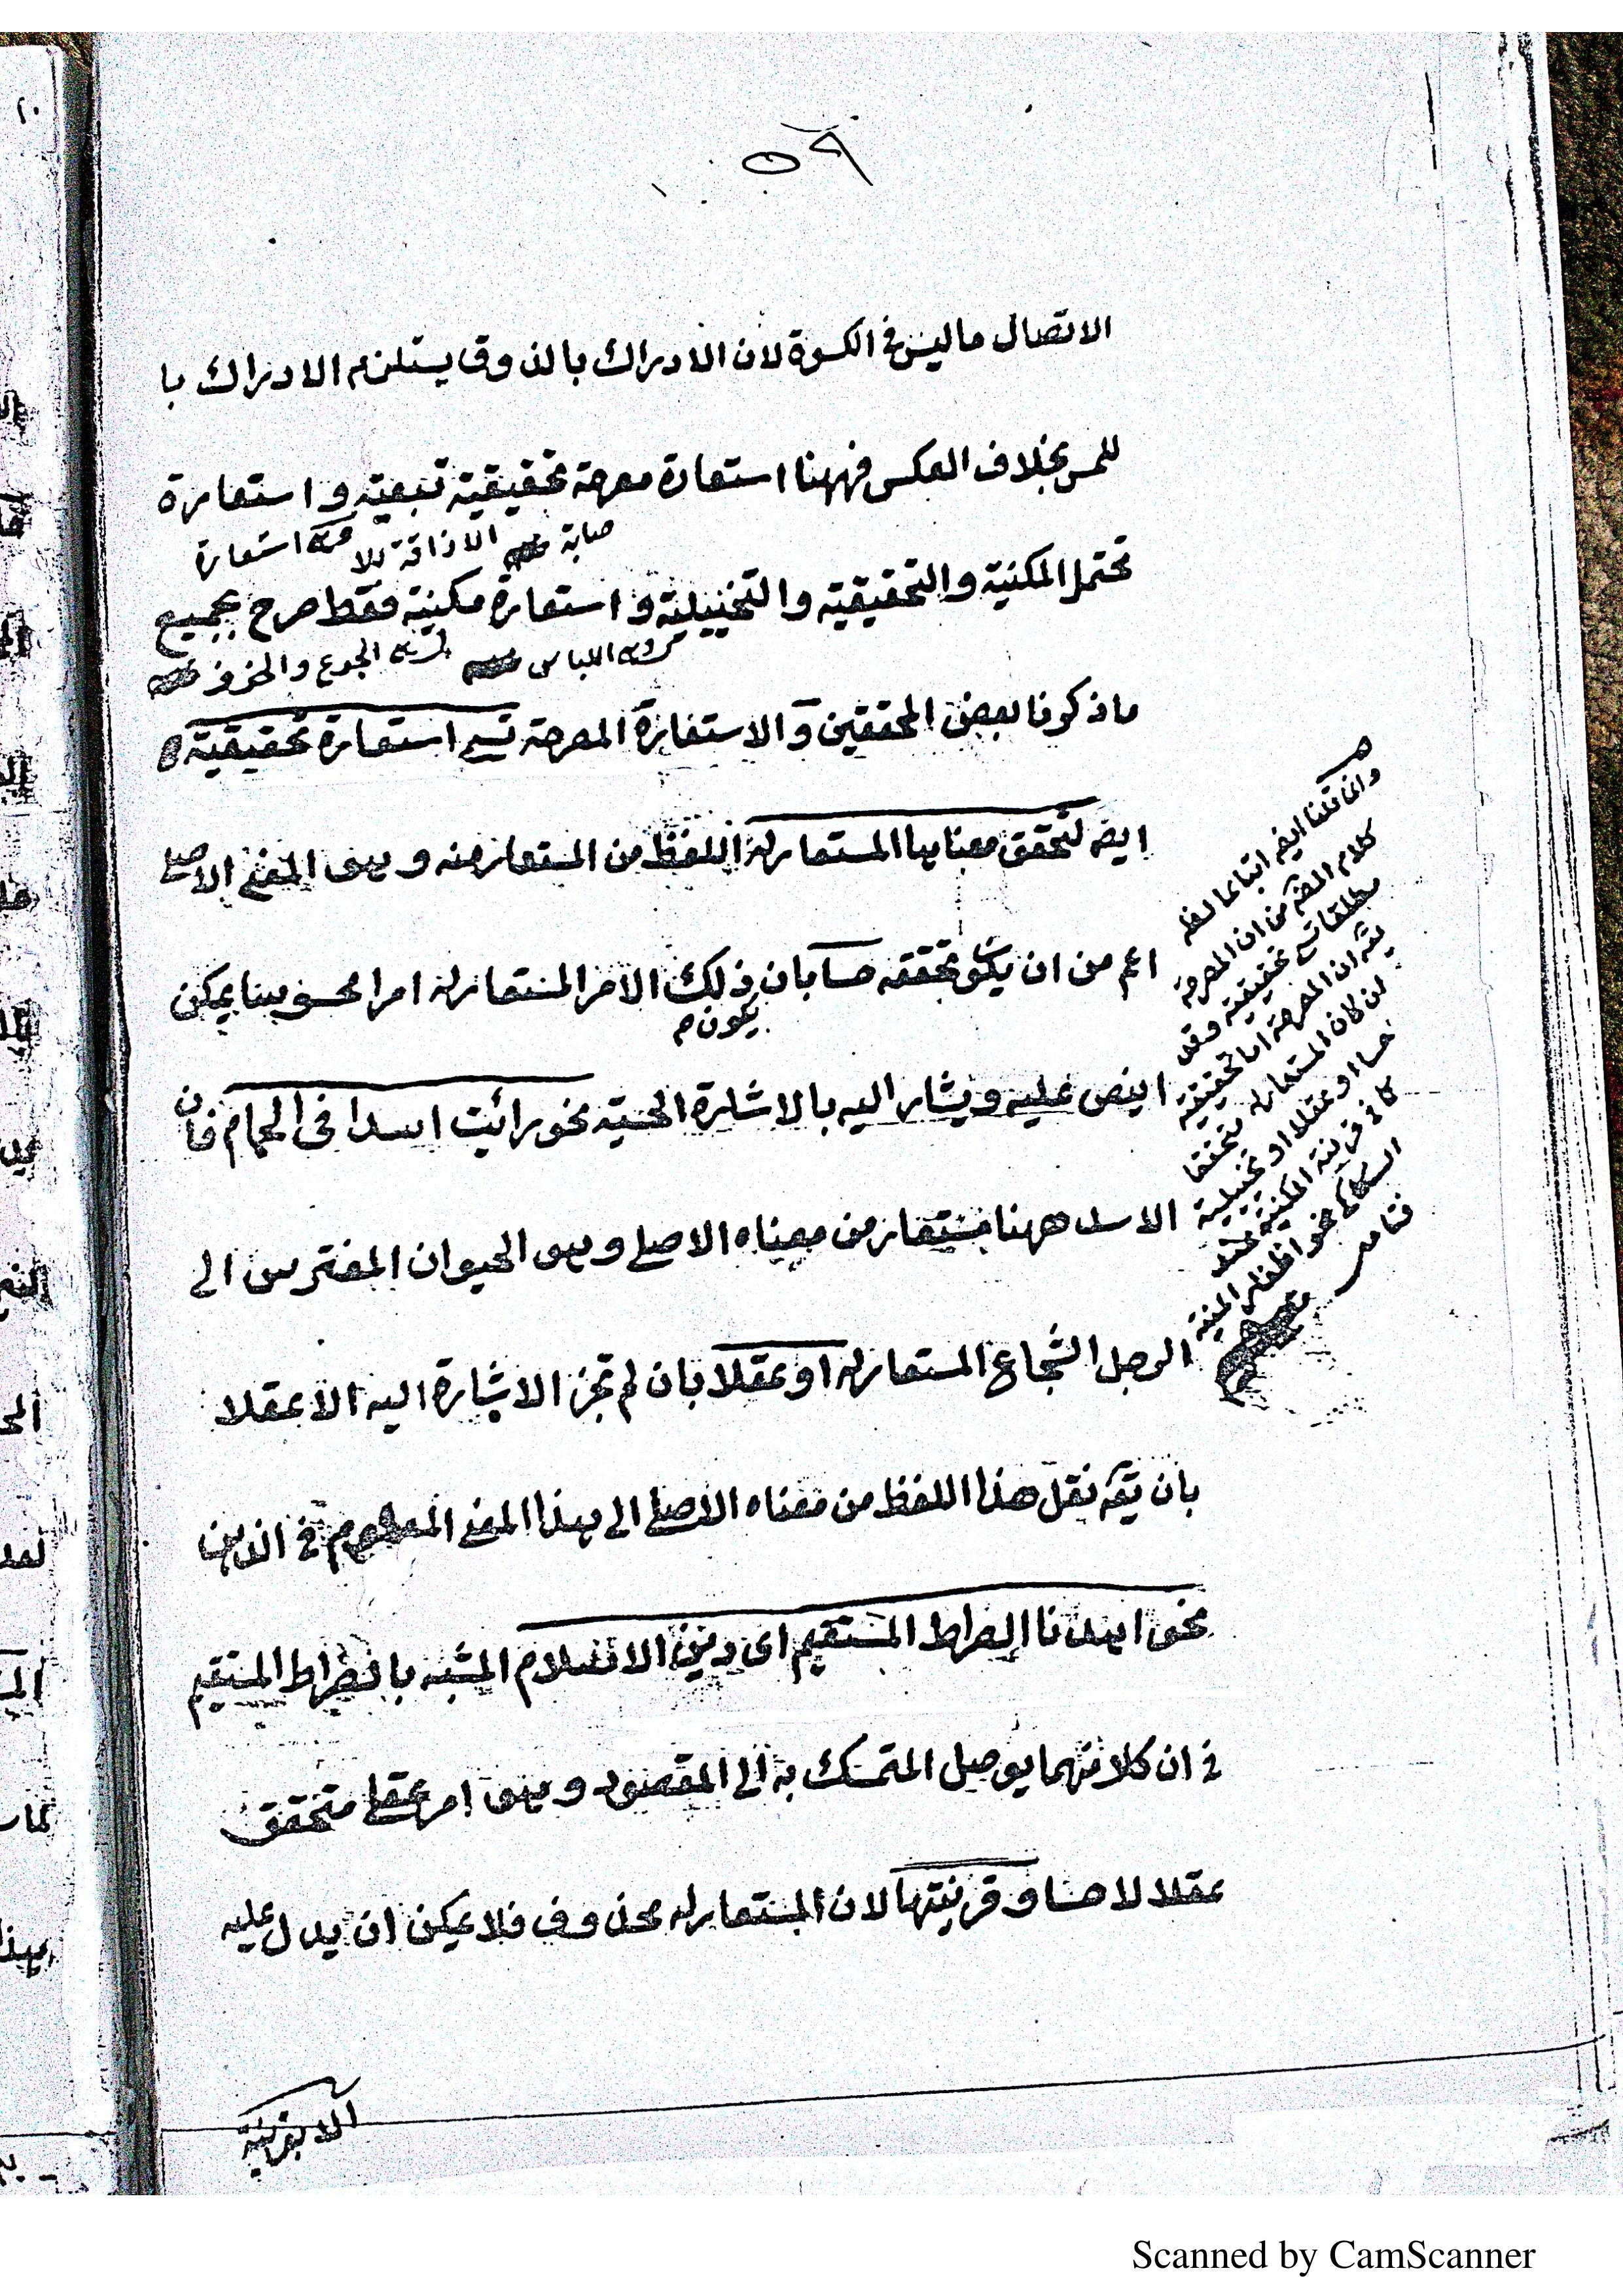 ٥٩
الاتصال ما ليس فى الكسوة لان الادراك بالذوق يستلزم الادراك با
للمس بخلاف العكس فههنا استعارة مصرحة تحقيقية تبعية و استعارة
صابة الاذاقة للا استعارة
تحتمل المكنية والتحقيقية والتخييلية و استعارة مكنية فقط صرح بجميع
اللباس الجوع والخوف
ما ذكرنا بعض المحققين و الاستعارة المصرحة تسمى استعارة تحقيقية
ايضه لتحقق معناها المستعار له اللفظ من المستعار منه و هو المعنى الاصلى
اعم من ان يكون تحققه حسا بان ذلك الامر المستعار له امرا محسوسا يمكن
يكون م
اينص عليه ويشار اليه بالاشارة الحسية نحو رائت اسدا فى الحمام فان
الاسد ههنا مستعار من معناه الاصلى وهو الحيوان المفترس الى
الرجل الشجاع المستعار له او عقلا بان لم تجز الاشارة اليه الا عقلا
بان يقه نقل هذا اللفظ من معناه الاصلى الى هذا المعنى فى الذهن
نحو اهدنا الصراط المستقيم اى دين الاسلام المشبه بالصراط المستقيم
فى ان كلا منهما يوصل المتمسك به الى المقصود وهو امر عقلى متحقق
عقلا لا حسا و قرينتها لان المستعار له محذوف فلا يمكن ان يدل عليه
الا بقرينة
وان قلنا ايضه اتباعا لظ
كلام المصه من ان المصرحة
مطلقا تحقيقية وقد
يقه ان المصرحة اما تحقيقية
ان كان المستعار له متحققا
حسا او عقلا او تخييلية
كما فى قرينة المكنية عند
السكاكى نحو اظفار المنية
فتامل
Scanned by CamScanner